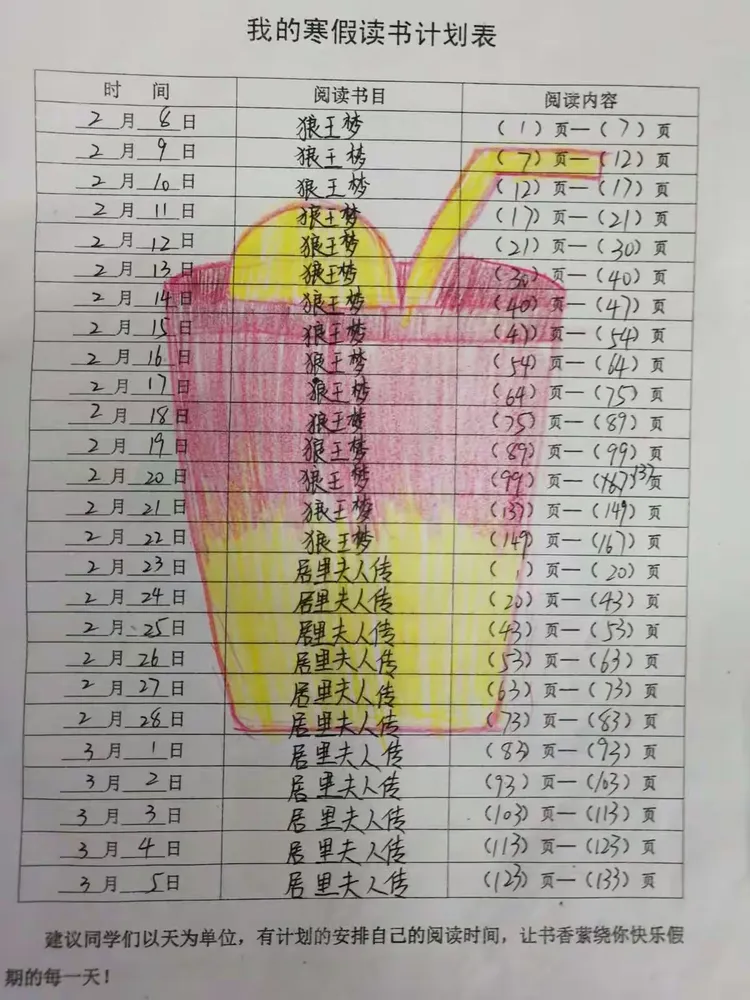 我的寒假读书计划表
时 间 阅读书目 阅读内容
2月8日 狼王梦 (1)页—(7)页
2月9日 狼王梦 (7)页—(12)页
2月10日 狼王梦 (12)页—(17)页
2月11日 狼王梦 (17)页—(21)页
2月12日 狼王梦 (21)页—(30)页
2月13日 狼王梦 (30)页—(40)页
2月14日 狼王梦 (40)页—(47)页
2月15日 狼王梦 (47)页—(54)页
2月16日 狼王梦 (54)页—(64)页
2月17日 狼王梦 (64)页—(75)页
2月18日 狼王梦 (75)页—(89)页
2月19日 狼王梦 (89)页—(99)页
2月20日 狼王梦 (99)页—(167)137页
2月21日 狼王梦 (137)页—(149)页
2月22日 狼王梦 (149)页—(167)页
2月23日 居里夫人传 ( )页—(20)页
2月24日 居里夫人传 (20)页—(43)页
2月25日 居里夫人传 (43)页—(53)页
2月26日 居里夫人传 (53)页—(63)页
2月27日 居里夫人传 (63)页—(73)页
2月28日 居里夫人传 (73)页—(83)页
3月1日 居里夫人传 (83)页—(93)页
3月2日 居里夫人传 (93)页—(103)页
3月3日 居里夫人传 (103)页—(113)页
3月4日 居里夫人传 (113)页—(123)页
3月5日 居里夫人传 (123)页—(133)页
建议同学们以天为单位，有计划的安排自己的阅读时间，让书香萦绕你快乐假
期的每一天！